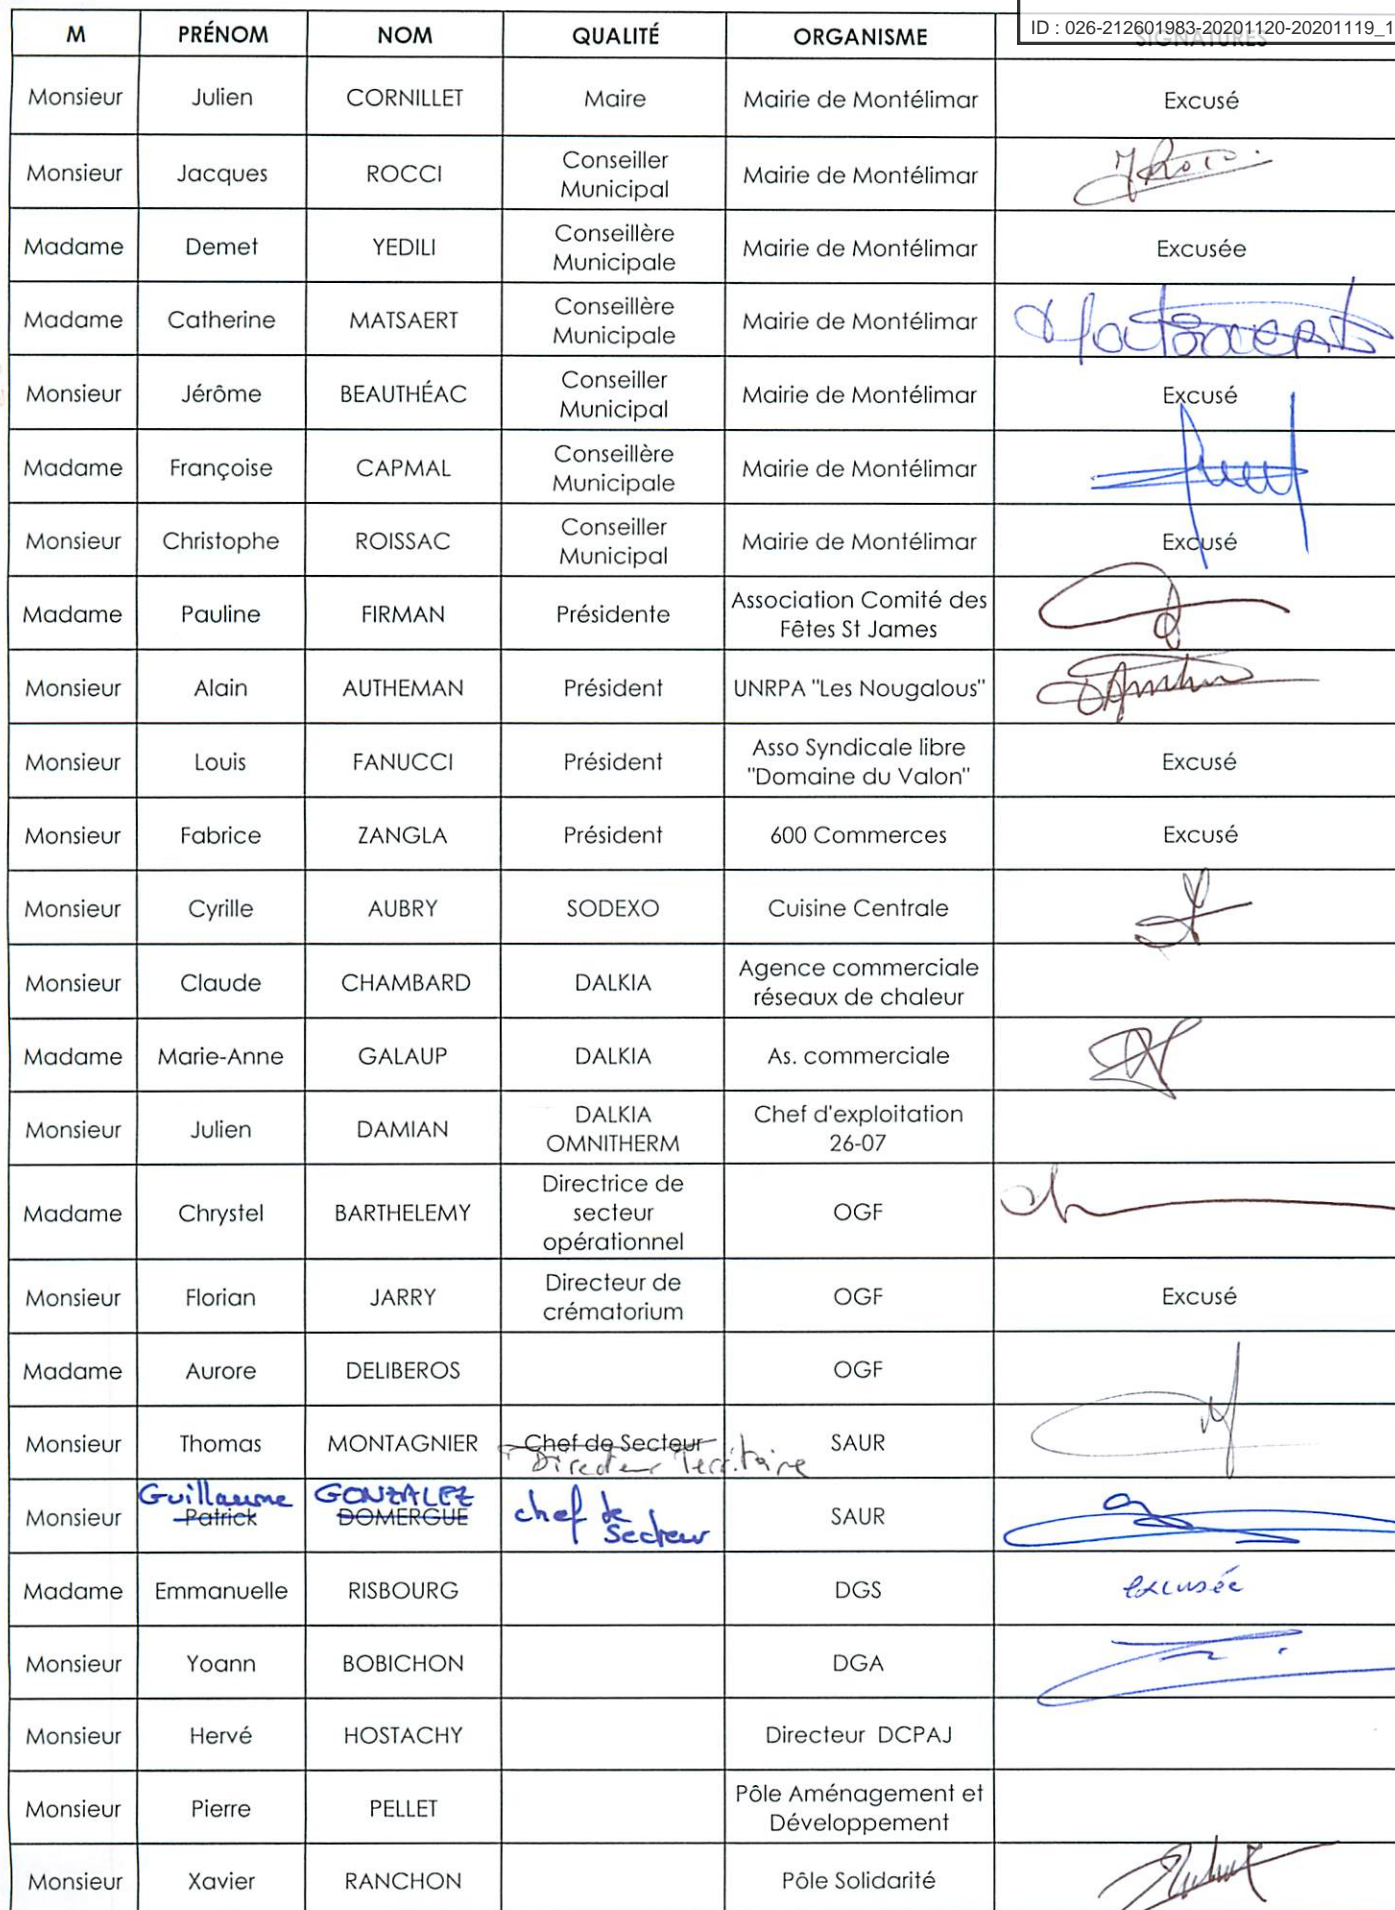 ID : 026-212601983-20201120-20201119_1
M PRÉNOM NOM QUALITÉ ORGANISME SIGNATURES
Monsieur Julien CORNILLET Maire Mairie de Montélimar Excusé
Monsieur Jacques ROCCI Conseiller Municipal Mairie de Montélimar
Madame Demet YEDILI Conseillère Municipale Mairie de Montélimar Excusée
Madame Catherine MATSAERT Conseillère Municipale Mairie de Montélimar
Monsieur Jérôme BEAUTHÉAC Conseiller Municipal Mairie de Montélimar Excusé
Madame Françoise CAPMAL Conseillère Municipale Mairie de Montélimar
Monsieur Christophe ROISSAC Conseiller Municipal Mairie de Montélimar Excusé
Madame Pauline FIRMAN Présidente Association Comité des Fêtes St James
Monsieur Alain AUTHEMAN Président UNRPA "Les Nougalous"
Monsieur Louis FANUCCI Président Asso Syndicale libre "Domaine du Valon" Excusé
Monsieur Fabrice ZANGLA Président 600 Commerces Excusé
Monsieur Cyrille AUBRY SODEXO Cuisine Centrale
Monsieur Claude CHAMBARD DALKIA Agence commerciale réseaux de chaleur
Madame Marie-Anne GALAUP DALKIA As. commerciale
Monsieur Julien DAMIAN DALKIA OMNITHERM Chef d'exploitation 26-07
Madame Chrystel BARTHELEMY Directrice de secteur opérationnel OGF
Monsieur Florian JARRY Directeur de crématorium OGF Excusé
Madame Aurore DELIBEROS OGF
Monsieur Thomas MONTAGNIER Chef de Secteur Directeur Territoire SAUR
Monsieur Guillaume Patrick GONZALEZ DOMERGUE chef de Secteur SAUR
Madame Emmanuelle RISBOURG DGS excusée
Monsieur Yoann BOBICHON DGA
Monsieur Hervé HOSTACHY Directeur DCPAJ
Monsieur Pierre PELLET Pôle Aménagement et Développement
Monsieur Xavier RANCHON Pôle Solidarité